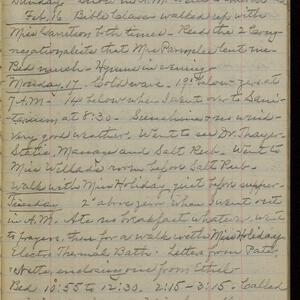 Sunday Snow in A.M.
Feb. 16 Bible Class walked up with
Miss Samelson both times - Read the 2 Cong-
regationalists that Miss Parmelee lent me -
Bed much - Hymns in evening -
Monday, 17 Cold wave. 19° below zero at
7 A.M. 14 below when I went over to Sani-
tarium at 8:30 - Sunshine & no wind -
very good weather. Went to see Dr. Thayer
Static, Massage and Salt Rub. Went to
Miss Willard's room before Salt Rub -
walk with Miss Holiday just before supper -
Tuesday 2° above zero when I went out
in A.M. Ate no breakfast whatever. Went
to prayers, then for a walk with Miss Holiday
Electro Thermal Bath. Letter from Kate
Nettie, enclosing one from Ethel -
Bed 10:55 to 12:30. 2:15 - 3:15. Called